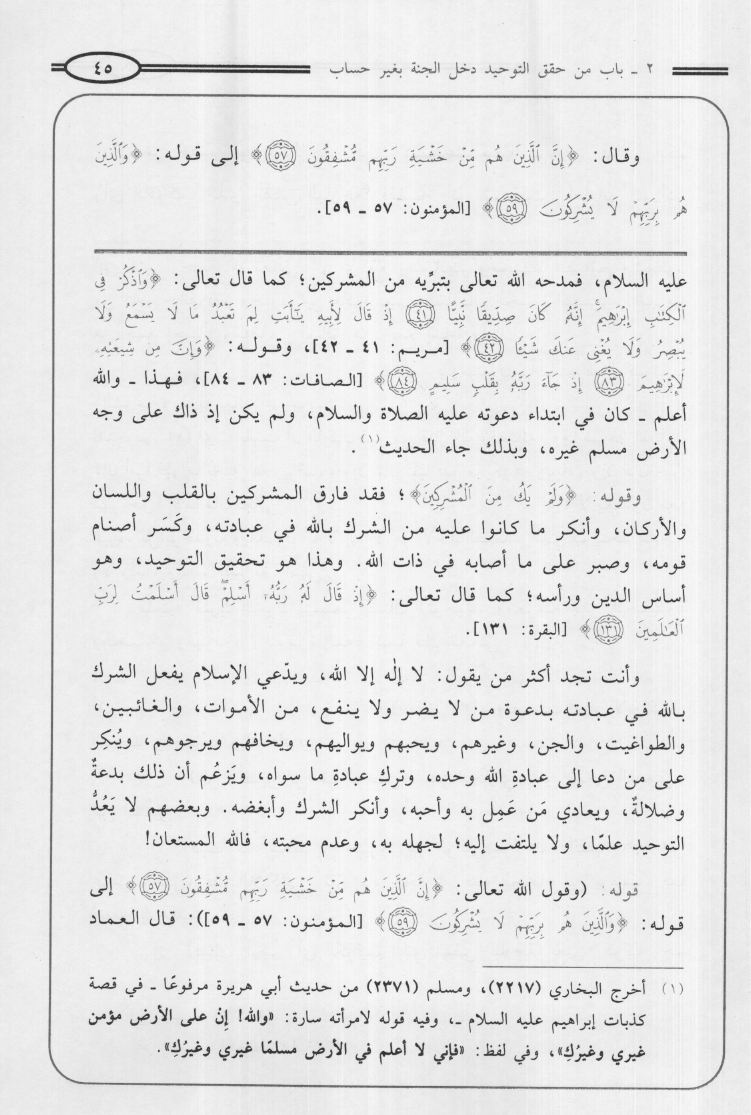 ٢ ـ باب من حقق التوحيد دخل الجنة بغير حساب
٤٥
وقال: ﴿إِنَّ ٱلَّذِينَ هُم مِّنْ خَشْيَةِ رَبِّهِم مُّشْفِقُونَ ٥٧﴾ إلى قوله: ﴿وَٱلَّذِينَ
هُم بِرَبِّهِمْ لَا يُشْرِكُونَ ٥٩﴾ [المؤمنون: ٥٧ ـ ٥٩].
عليه السلام، فمدحه الله تعالى بتبرِّيه من المشركين؛ كما قال تعالى: ﴿وَٱذْكُرْ فِى
ٱلْكِتَٰبِ إِبْرَٰهِيمَ ۚ إِنَّهُۥ كَانَ صِدِّيقًا نَّبِيًّا ٤١ إِذْ قَالَ لِأَبِيهِ يَٰٓأَبَتِ لِمَ تَعْبُدُ مَا لَا يَسْمَعُ وَلَا
يُبْصِرُ وَلَا يُغْنِى عَنكَ شَيْـًٔا ٤٢﴾ [مريم: ٤١ ـ ٤٢]، وقوله: ﴿وَإِنَّ مِن شِيعَتِهِۦ
لَإِبْرَٰهِيمَ ٨٣ إِذْ جَآءَ رَبَّهُۥ بِقَلْبٍ سَلِيمٍ ٨٤﴾ [الصافات: ٨٣ ـ ٨٤]، فهذا ـ والله
أعلم ـ كان في ابتداء دعوته عليه الصلاة والسلام، ولم يكن إذ ذاك على وجه
الأرض مسلم غيره، وبذلك جاء الحديث(١).
وقوله: ﴿وَلَمْ يَكُ مِنَ ٱلْمُشْرِكِينَ﴾؛ فقد فارق المشركين بالقلب واللسان
والأركان، وأنكر ما كانوا عليه من الشرك بالله في عبادته، وكَسَر أصنام
قومه، وصبر على ما أصابه في ذات الله. وهذا هو تحقيق التوحيد، وهو
أساس الدين ورأسه؛ كما قال تعالى: ﴿إِذْ قَالَ لَهُۥ رَبُّهُۥٓ أَسْلِمْ ۖ قَالَ أَسْلَمْتُ لِرَبِّ
ٱلْعَٰلَمِينَ ١٣١﴾ [البقرة: ١٣١].
وأنت تجد أكثر من يقول: لا إلٰه إلا الله، ويدّعي الإسلام يفعل الشرك
بالله في عبادته بدعوة من لا يضر ولا ينفع، من الأموات، والغائبين،
والطواغيت، والجن، وغيرهم، ويحبهم ويواليهم، ويخافهم ويرجوهم، ويُنكِر
على من دعا إلى عبادةِ الله وحده، وتركِ عبادةِ ما سواه، ويَزعُم أن ذلك بدعةٌ
وضلالةٌ، ويعادي مَن عَمِل به وأحبه، وأنكر الشرك وأبغضه. وبعضهم لا يَعُدُّ
التوحيد علمًا، ولا يلتفت إليه؛ لجهله به، وعدم محبته، فالله المستعان!
قوله: (وقول الله تعالى: ﴿إِنَّ ٱلَّذِينَ هُم مِّنْ خَشْيَةِ رَبِّهِم مُّشْفِقُونَ ٥٧﴾ إلى
قوله: ﴿وَٱلَّذِينَ هُم بِرَبِّهِمْ لَا يُشْرِكُونَ ٥٩﴾ [المؤمنون: ٥٧ ـ ٥٩]): قال العماد
(١) أخرج البخاري (٢٢١٧)، ومسلم (٢٣٧١) من حديث أبي هريرة مرفوعًا ـ في قصة
كذبات إبراهيم عليه السلام ـ، وفيه قوله لامرأته سارة: «والله! إنْ على الأرض مؤمن
غيري وغيرُكِ»، وفي لفظ: «فإني لا أعلم في الأرض مسلمًا غيري وغيرُكِ».